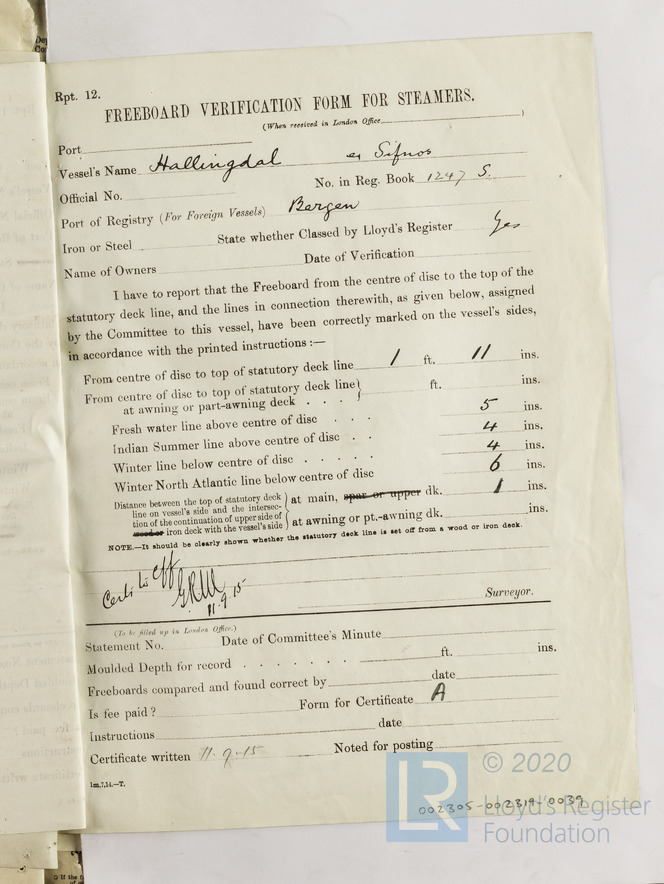 Rpt. 12.
FREEBOARD VERIFICATION FORM FOR STEAMERS.
(When received in London Office )
Port
Vessel's Name Hallingdal ex Sifnos
Official No. No. in Reg. Book 1247 S.
Port of Registry (For Foreign Vessels) Bergen
Iron or Steel State whether Classed by Lloyd's Register Yes
Name of Owners Date of Verification
I have to report that the Freeboard from the centre of disc to the top of the
statutory deck line, and the lines in connection therewith, as given below, assigned
by the Committee to this vessel, have been correctly marked on the vessel's sides,
in accordance with the printed instructions :—
From centre of disc to top of statutory deck line 1 ft. 11 ins.
From centre of disc to top of statutory deck line
at awning or part-awning deck . . . } ft. ins.
Fresh water line above centre of disc . . . 5 ins.
Indian Summer line above centre of disc . . 4 ins.
Winter line below centre of disc . . . . . 4 ins.
Winter North Atlantic line below centre of disc 6 ins.
Distance between the top of statutory deck
line on vessel's side and the intersec-
tion of the continuation of upper side of
wood or iron deck with the vessel's side
} at main, spar or upper dk. 1 ins.
} at awning or pt.-awning dk. ins.
NOTE.—It should be clearly shown whether the statutory deck line is set off from a wood or iron deck.
11.9.15
Surveyor.
(To be filled up in London Office.)
Statement No. Date of Committee's Minute
Moulded Depth for record . . . . . . . ft. ins.
Freeboards compared and found correct by date
Is fee paid? Form for Certificate A
Instructions date
Certificate written 11.9.15 Noted for posting
1m,7,14.—T.
002305-002319-0039
LR
© 2020
Lloyd's Register
Foundation